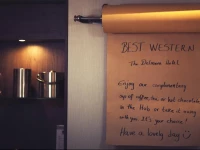 BEST WESTERN
The Delmere Hotel
Enjoy our complimentary
cup of coffee, tea or hot chocolate
in the Hub or take it away
with you. It's your choice!
Have a lovely day